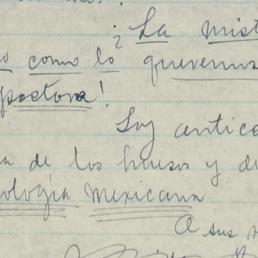 ¡La mist
o como lo quevemos
pastora!
Soy antico
a de los huesos y di
ología mexicana
A sus